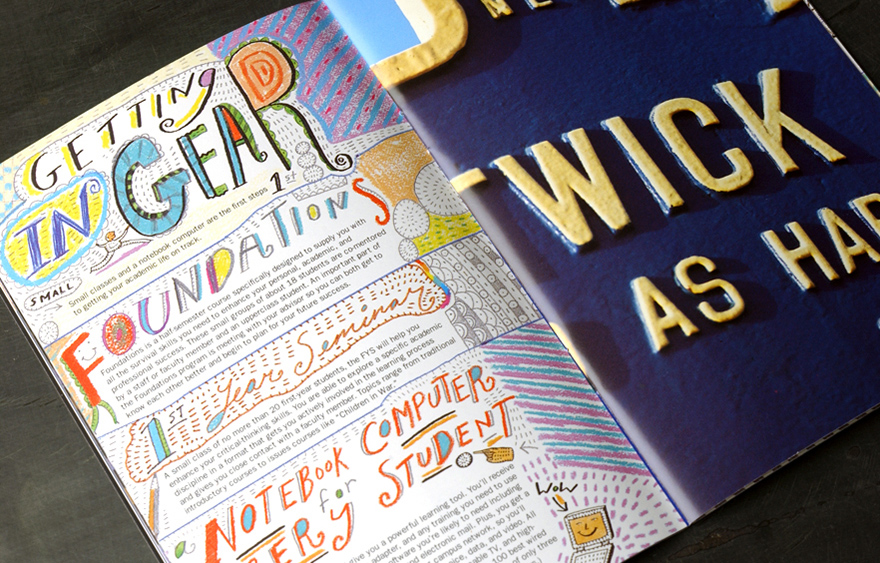 GETTING
IN GEAR
1st
SMALL
Small classes and a notebook computer are the first steps
to getting your academic life on track.
FOUNDATIONS
Foundations is a half-semester course specifically designed to supply you with
all the survival skills you need to enhance your personal, academic, and
professional success. These small groups of about 18 students are co-mentored
by a staff or faculty member and an upperclass student. An important part of
the Foundations program is meeting with your advisor so you can both get to
know each other better and begin to plan for your future success.
1ST Year Seminar
A small class of no more than 20 first-year students, the FYS will help you
enhance your critical-thinking skills. You are able to explore a specific academic
discipline in a format that gets you actively involved in the learning process
and gives you close contact with a faculty member. Topics range from traditional
introductory courses to issues courses like "Children in War."
NOTEBOOK COMPUTER
for
STUDENT
WOW
give you a powerful learning tool. You'll receive
adapter, and any training you need to use
software you're likely to need including
and electronic mail. Plus, you get a
campus network, so you'll
voice, data, and video. All
cable TV, and high
100 best wired
of only three
NE
TWICK
AS HAR